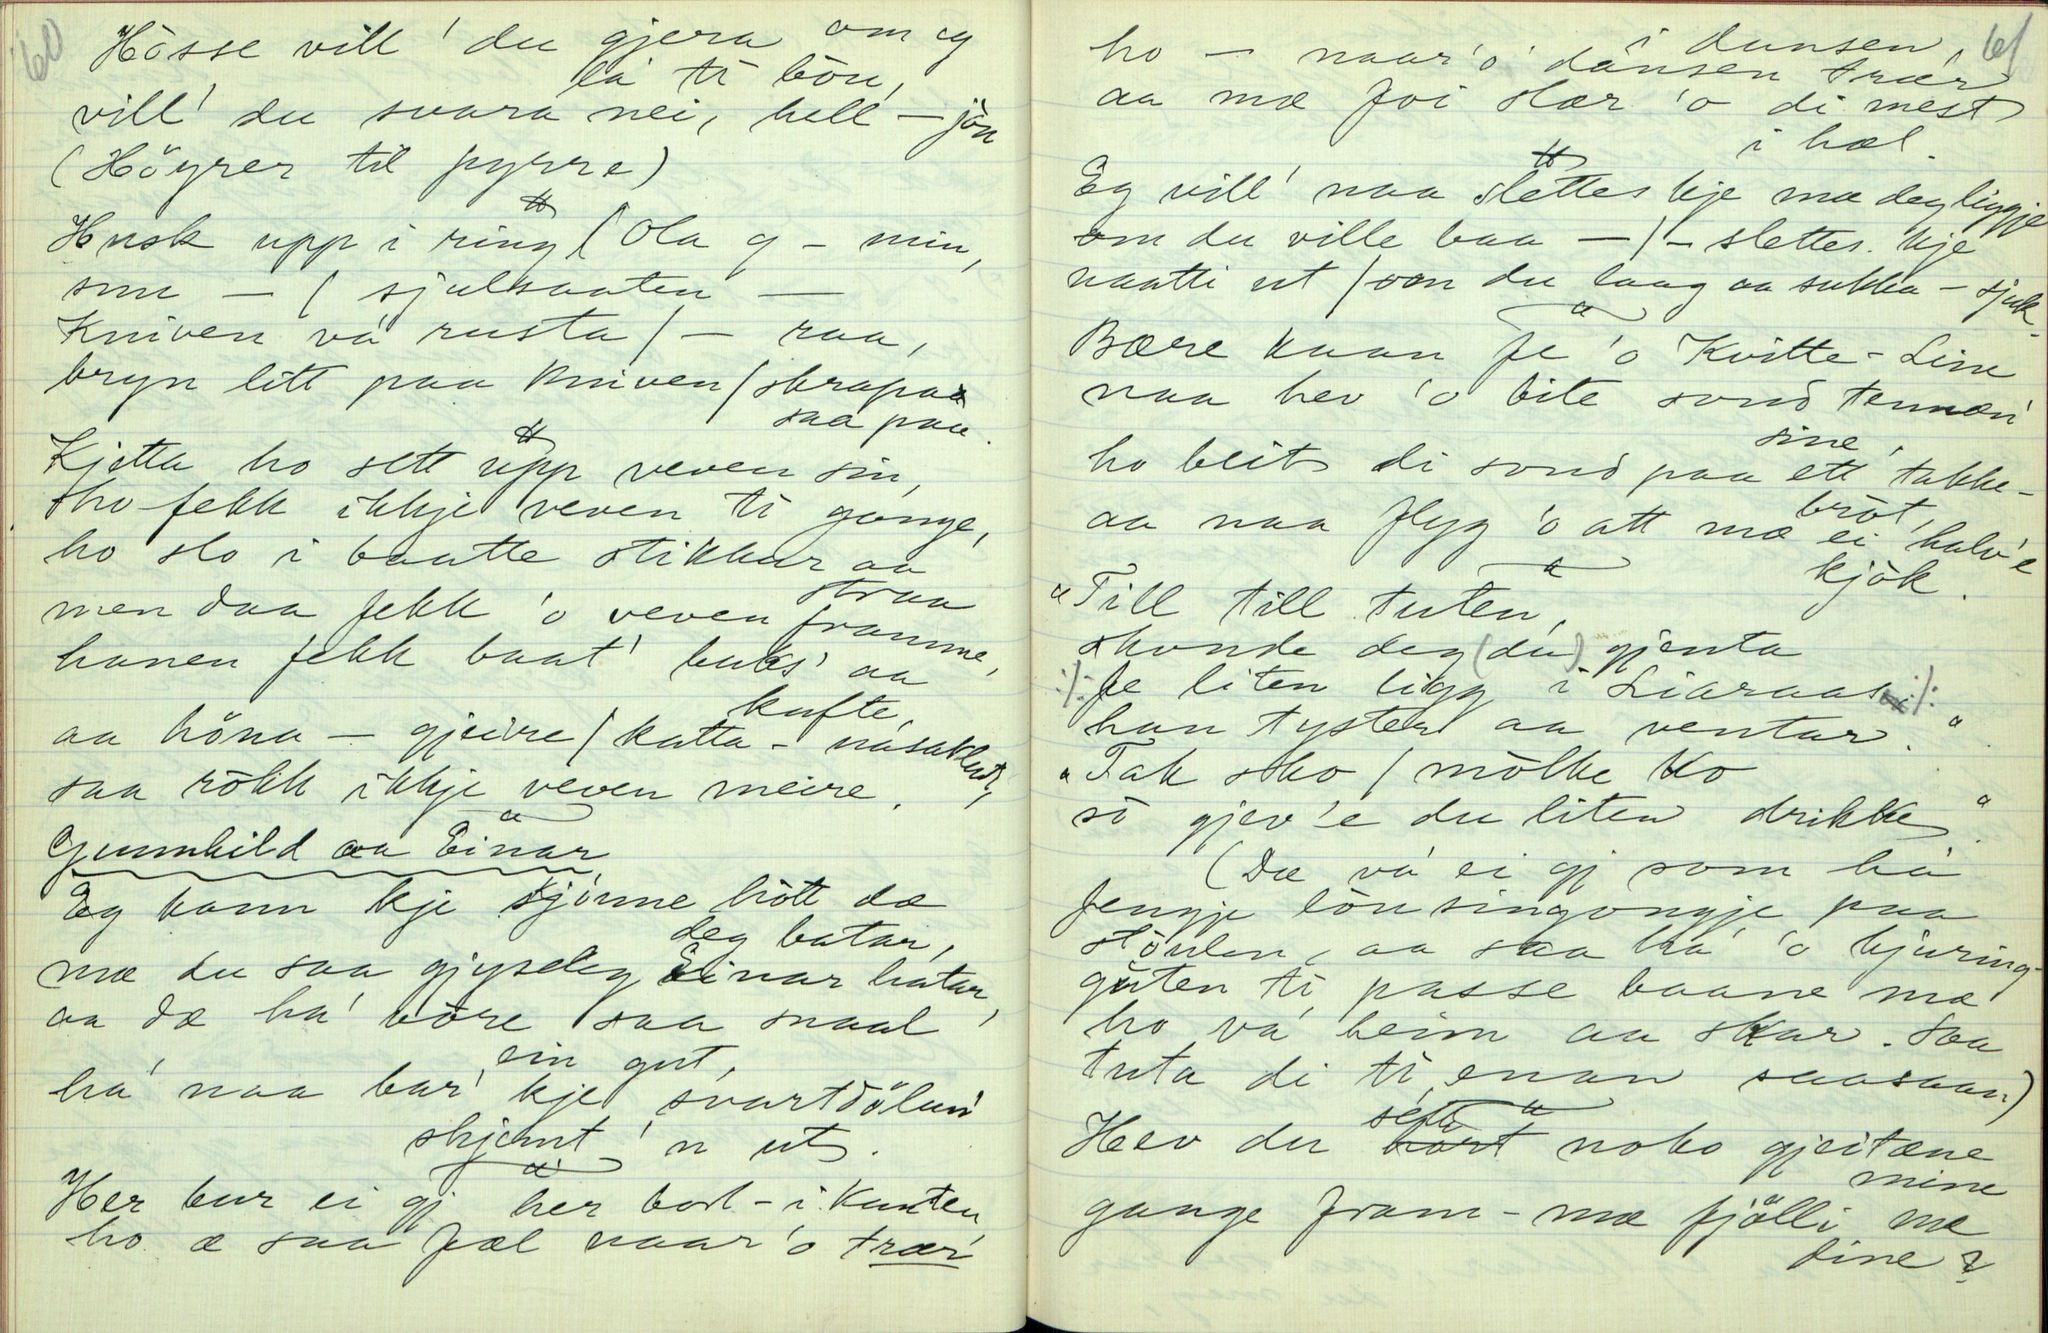 60
Hösse vill' du gjera om eg
la ti bön,
vill' du svara nei, hell – jön
(Höyrer til pyrre)
Husk upp i ring / Ola g – min,
sum – / sjulsaaten —
Kniven va' rusta / – raa,
bryn litt paa kniven / skrapaa
saa paa.
Kjetta ho sett upp veven sin,
ho fekk ikkje veven ti gange,
ho slo i baatte stikkur aa
straa
men daa fekk 'o veven framme,
hanen fekk baat' buks' aa
kufte,
aa höna – gjeire / katta – nasaklut,
saa rökk ikkje veven meire.
Gunnhild aa Einar
Eg kann kje skjönne hött dæ
deg batar,
mæ du saa gjyseleg Einar hatar,
aa dæ ha' vöre saa snaal
ein gut,
ha' naa bar' kje svartdölan'
skjemt 'n ut.
Her bur ei gj her bort – i Kanten
ho æ saa fæl naar 'o trær'
61
ho – naar 'o dansen trær
i dansen,
aa mæ foi slær 'o di mest
i hæl.
Eg vill' naa slettes kje mæ deg liggje
om du ville baa – / – slettes kje
naatti ut / om du laag aa sukka – sjuk.
Bære kaan Je 'o Kvitte-Line
naa hev 'o bite sond tennan'
sine,
ho beit di sond paa ett takke-
bröt,
aa naa flyg 'o att mæ ei halv'e
kjök.
"Till till tuten,
skunde deg (du) gjenta
:/: Je liten ligg i Liaraas :/:
han tyster aa ventar."
"Tak sko / mölke Ko
so gjev 'e du liten drikke".
(Dæ va' ei gj som ha'
fengje lönsingongje paa
stöulen, aa saa ha' 'o hjuring-
guten ti passe baane mæ
ho va' heim aa skar. Saa
tuta di ti enan saasaan)
Hev du sett noko gjeitæne
mine
gange fram – mæ fjölli mæ
dine?